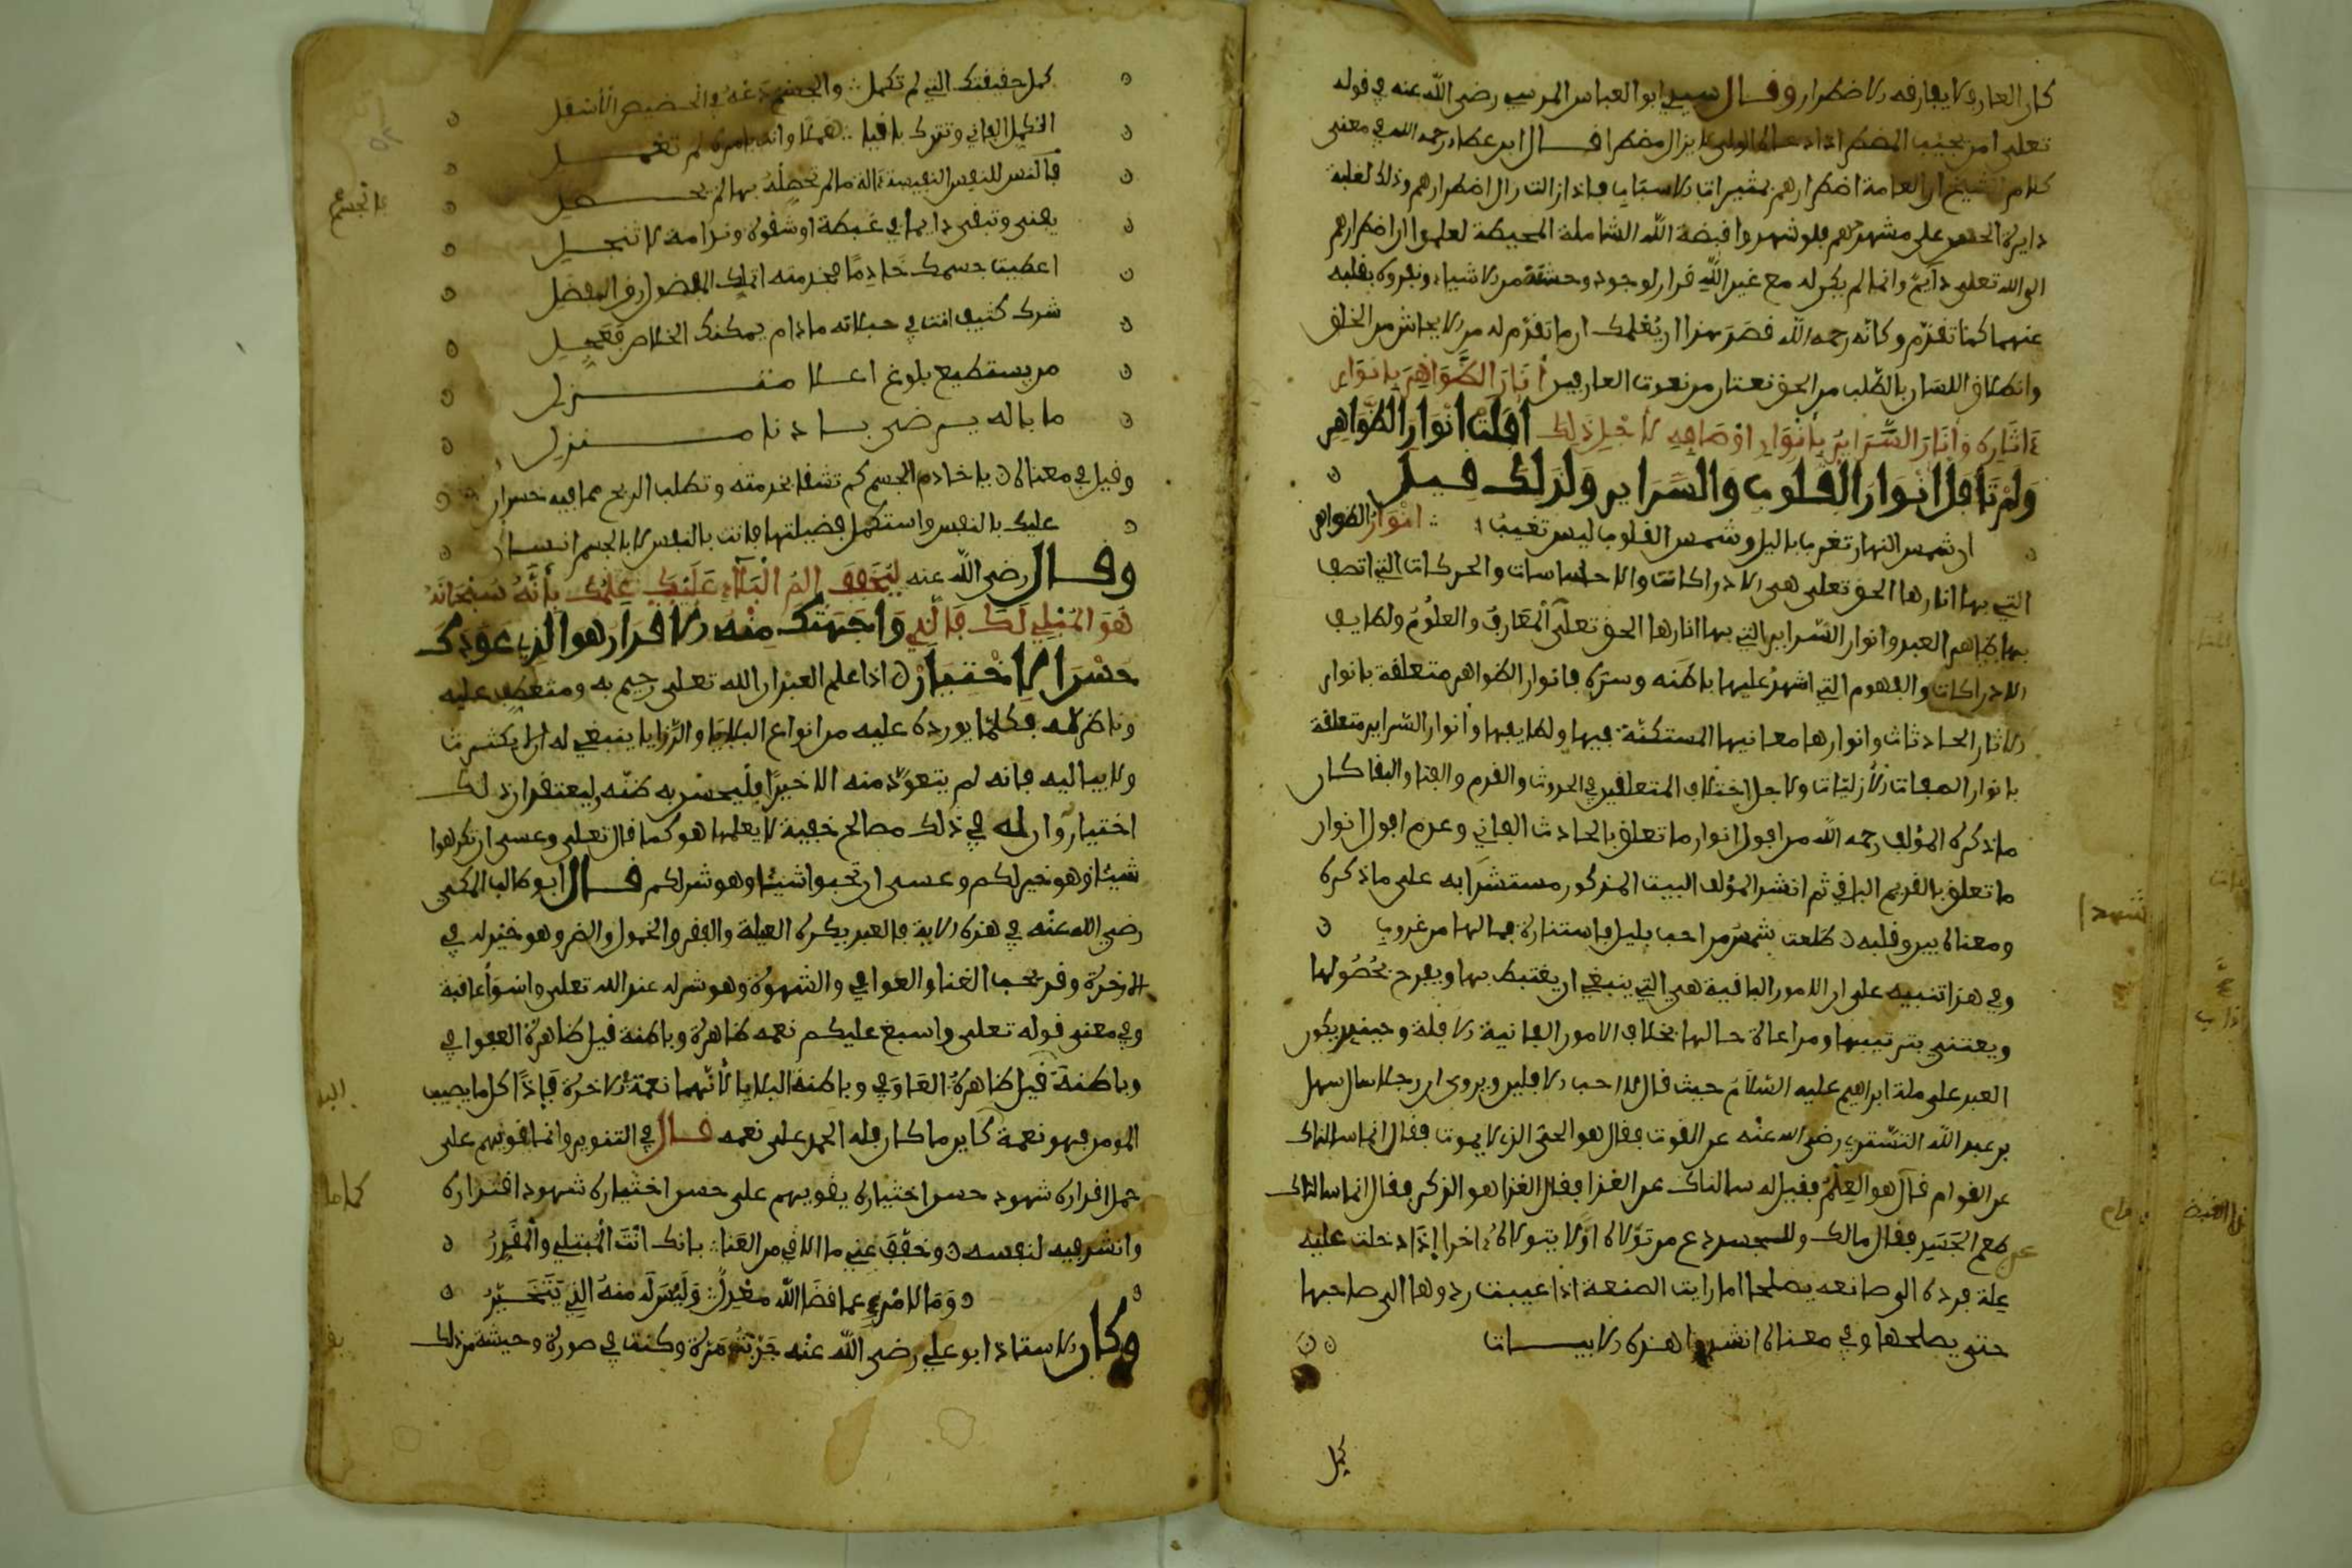 كان العارف لا يفارقه الاضطرار وقال سيدي ابو العباس المرسي رضي الله عنه في قوله
تعلى امن يجيب المضطر اذا دعاه الولي لا يزال مضطرا قال ابن عطاء رحمه الله في معنى
كلام الشيخ ان العامة اضطرارهم بمثيرات الاسباب فاذا زالت زال اضطرارهم وذلك لغلبة
دايرة الحس على مشهدهم فلو شهدوا قبضة الله الشاملة المحيطة لعلموا ان اضطرارهم
الى الله تعلى دآيم وانما لم يكن له مع غير الله قرار لوجود وحشته من الاشياء ونفوره بقلبه
عنهما كما تقدم وكانه رحمه الله قصد بهذا ان يعلمك ان ما تقدم له من الايحاش من الخلق
وانطلاق اللسان بالطلب من الحق نعتان من نعوت العارفين أَنَارَ الظَّوَاهِرَ بِأَنْوَارِ
ءَاثَارِهِ وَأَنَارَ السَّرَايِرَ بِأَنْوَارِ أَوْصَافِهِ لأَجْلِ ذَلِكَ أَفَلَتْ أَنْوَارُ الظَّوَاهِرِ
وَلَمْ تَافُلْ أَنْوَارُ الْقُلُوبِ وَالسَّرَايِرِ وَلِذَلِكَ قِيلَ
ان شمس النهار تغرب باليل وشمس القلوب ليس تغيب ∴ انوار الظواهر
التي بها انارها الحق تعلى هي الادراكات والاحساسات والحركات التي اتصف
بها ظاهر العبد وانوار السراير التي بها انارها الحق تعلى المعارف والعلوم ولطايف
الادراكات والفهوم التي اشهد عليها باطنه وسره فانوار الظواهر متعلقة بانوار
الاثار الحادثات وانوارها معانيها المستكنّة فيها ولطايفها وأنوار السراير متعلقة
بانوار الصفات الأزليّات ولاجل اختلاف المتعلقين في الحدوث والقدم والفنا والبقا كان
ما ذكره المؤلف رحمه الله من افول انوار ما تعلق بالحادث الفاني وعدم افول انوار
ما تعلق بالقديم الباقي ثم انشد المؤلف البيت المذكور مستشهدا به على ما ذكره
ومعناه بين وقبله ں طلعت شمس من احب بليل واستنارت فما لها من غروب
وفي هذا تنبيه على ان الامور الباقية هي التي ينبغي ان يغتبط بها ويفرح بحُصُولها
ويعتني بترتيبها ومراعاة حالها بخلاف الامور الفانية الافلة وحينئذ يكون
العبد على ملة ابراهيم عليه السلام حيث قال لا احب الافلين ويروى ان رجلا سال سهل
بن عبد الله التستري رضي الله عنه عن القوت فقال هو الحي الذي لا يموت فقال انما سالتك
عن القوام قال هو العلم فقيل له سالتك عن الغذا فقال الغذا هو الذكر فقال انما سالتك
عن طعم الجسد فقال مالك وللجسد دع من تولاه اوّلا يتولاه ءاخرا إذا دخلت عليه
علة فرده الى صانعه يصلحه اما رايت الصنعة اذا عيبت ردوها الى صاحبها
حتى يصلحها وفي معناه انشدوا هذه الابيات
كمل
شهدا
كمل حقيقتك التي لم تكمل ∴ والجسم دعه في الحضيض الأسفل
اتكمل الفاني وتترك باقيا ∴ هملا وانت بامره لم تحفل
فالجسم للنفس النفيسة ءالة ما لم تحصله بها لم تحصل
يفنى وتبقى دايما في غبطة او شقوة وندامة لا تنجلي
اعطيت جسمك خَادِمًا فخدمته اتملك المفضول رق المفضل
شرك كثيف انت في حبلاته ما دام يمكنك الخلاص فعجل
من يستطيع بلوغ اعلا منزل
ما باله يرضى بادنا منزل
وقيل في معناه ں يا خادم الجسم كم تشقا بخدمته وتطلب الربح مما فيه خسران
عليك بالنفس واستكمل فضيلتها فانت بالنفس لا بالجسم انسان
وقال رضي الله عنه لِيُخَفِّفَ أَلَمَ الْبَلَاءِ عَلَيْكَ عِلْمُكَ بِأَنَّهُ سُبْحَانَهُ
هُوَ الْمُبْلِي لَكَ فَالَّذِي وَاجَهَتْكَ مِنْهُ الاقدار هو الذي عَوَّدك
حُسْنَ الاخْتِيَارْ ں اذا علم العبد ان الله تعلى رحيم به ومتعطف عليه
وناظر له فكلما يورده عليه من انواع البلايا والرّزايا ينبغي له ان لا يكثرث
ولا يباليه فانه لم يتعوّد منه الا خيرًا فليحسن به ظنّه وليعتقد ان ذلك
اختيار وان له في ذلك مصالح خفية لا يعلمها هو كما قال تعلى وعسى ان تكرهوا
شيئا وهو خير لكم وعسى ان تحبوا شيئا وهو شر لكم قال ابو طالب المكي
رضي الله عنه في هذه الاية فالعبد يكره العيلة والفقر والخمول والضر وهو خير له في
الاخرة وقد يحب الغنا والعوافي والشهوة وهو شر له عند الله تعلى واسوأ عاقبة
وفي معنى قوله تعلى واسبغ عليكم نعمه ظاهرة وباطنة قيل ظاهرة العوافي
وباطنة قيل ظاهرة العَوَافي وباطنة البلايا لأنهما نعمة الاخرة فإذًا كل ما يصيب
المومن فهو نعمة كاين ما كان فله الحمد على نعمه قال في التنوير وانما قويهم على
حمل اقداره شهود حسن اختياره يقويهم على حسن اختياره شهود اقتداره
وانشد فيه لنفسه ں وخفّف عني ما الاقي من العَنا ∴ بانك انْتَ الْمُبتلي والمُقدِّرُ
ں وَمَا لامْرِئٍ عما قضَا الله معْدِلٌ ∴ وَلَيْسَ لَهُ مِنْهُ الذي يَتَخَيَّرُ
وكان الاستاذ ابو علي رضي الله عنه